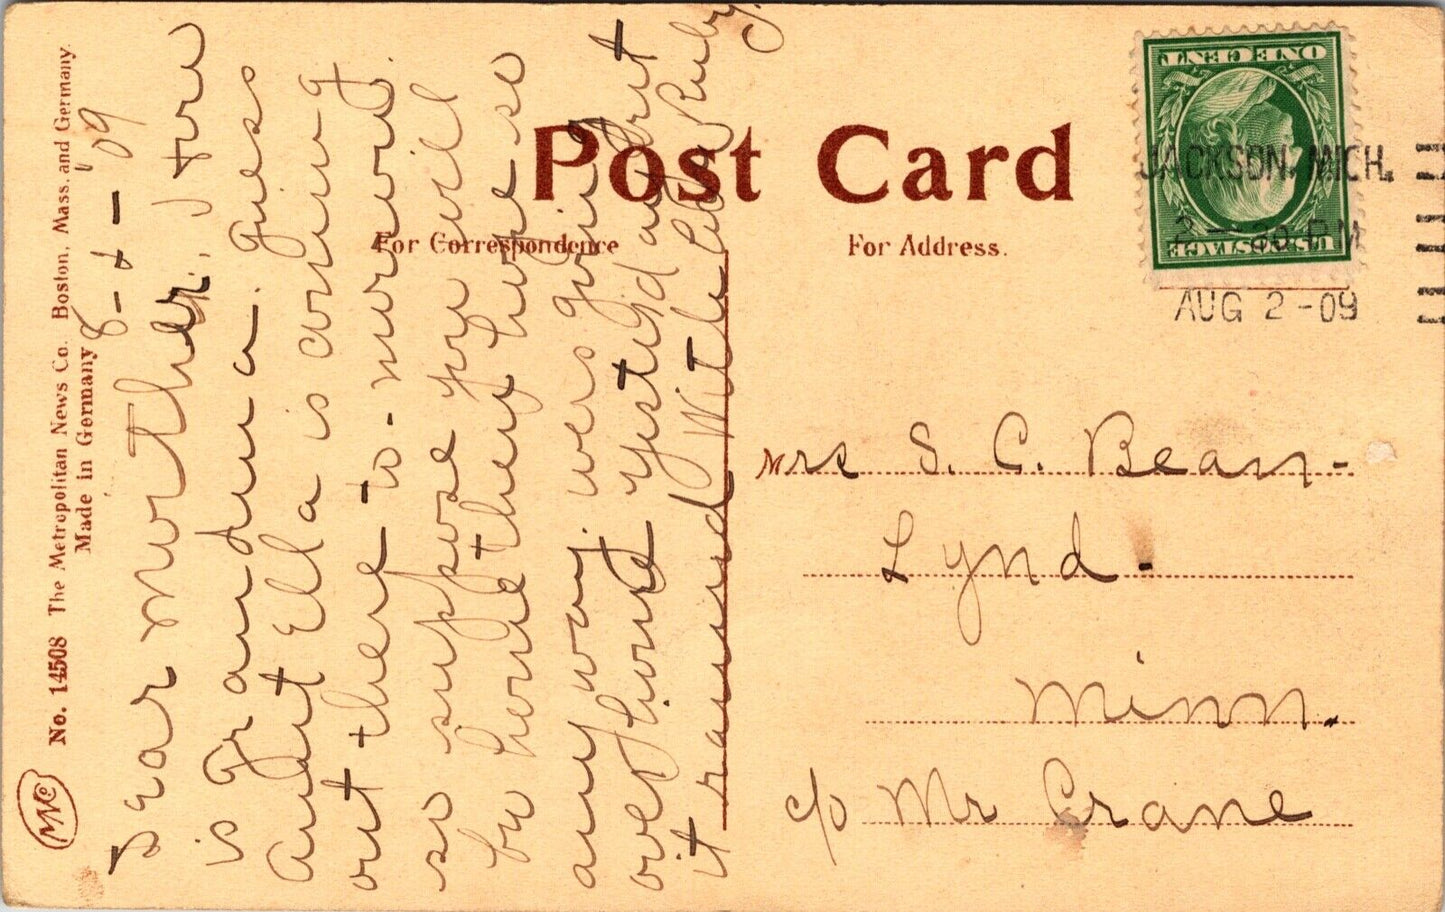 No. 14508 The Metropolitan News Co. Boston, Mass. and Germany
Made in Germany
MNC
8-2-'09
Dear Mother. How
is Grandma. Guess
Aunt Ella is coming
out there to-morrow.
so suppose you will
be home then hope so
anyway. were going
over home yesterd and it
it rained With love Ruby.
Post Card
For Correspondence
For Address.
ONE CENT
U.S. POSTAGE
JACKSON, MICH.
2 - 30 P M
AUG 2 - 09
Mrs S. C. Bean-
Lynd.
Minn.
c/o Mr Crane